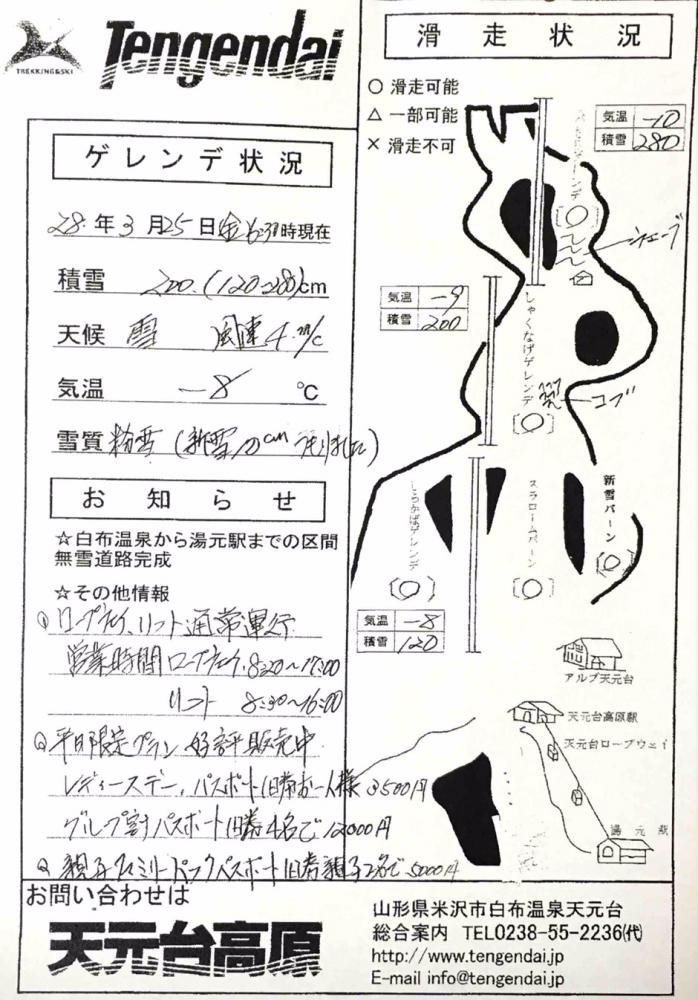 TREKKING&SKI
Tengendai
ゲレンデ状況
28年3月25日(金)6:30時現在
積雪 200.(120-280)cm
天候 雪 風速4m/s
気温 -8 ℃
雪質 粉雪(新雪10cm 降りました)
お知らせ
☆白布温泉から湯元駅までの区間
無雪道路完成
☆その他情報
ロープウェイ、リフト通常運行
営業時間ロープウェイ.8:20~17:00
リフト 8:30~16:00
平日限定プラン 好評販売中
レディースデー、パスポート1日券お一人様3,500円
グループ割パスポート1日券4名で12000円
親子ファミリーパックパスポート1日券親子2名で.5000円
滑走状況
○ 滑走可能
△ 一部可能
× 滑走不可
気温 -10
積雪 280
[○]
ウェーブ
気温 -9
積雪 200
しゃくなげゲレンデ
[○]
コブ
しらかばゲレンデ
[○]
スラロームバーン
[○]
新雪バーン
[○]
気温 -8
積雪 120
アルブ天元台
天元台高原駅
天元台ロープウェイ
湯元駅
お問い合わせは
天元台高原
山形県米沢市白布温泉天元台
総合案内 TEL0238-55-2236(代)
http://www.tengendai.jp
E-mail info@tengendai.jp